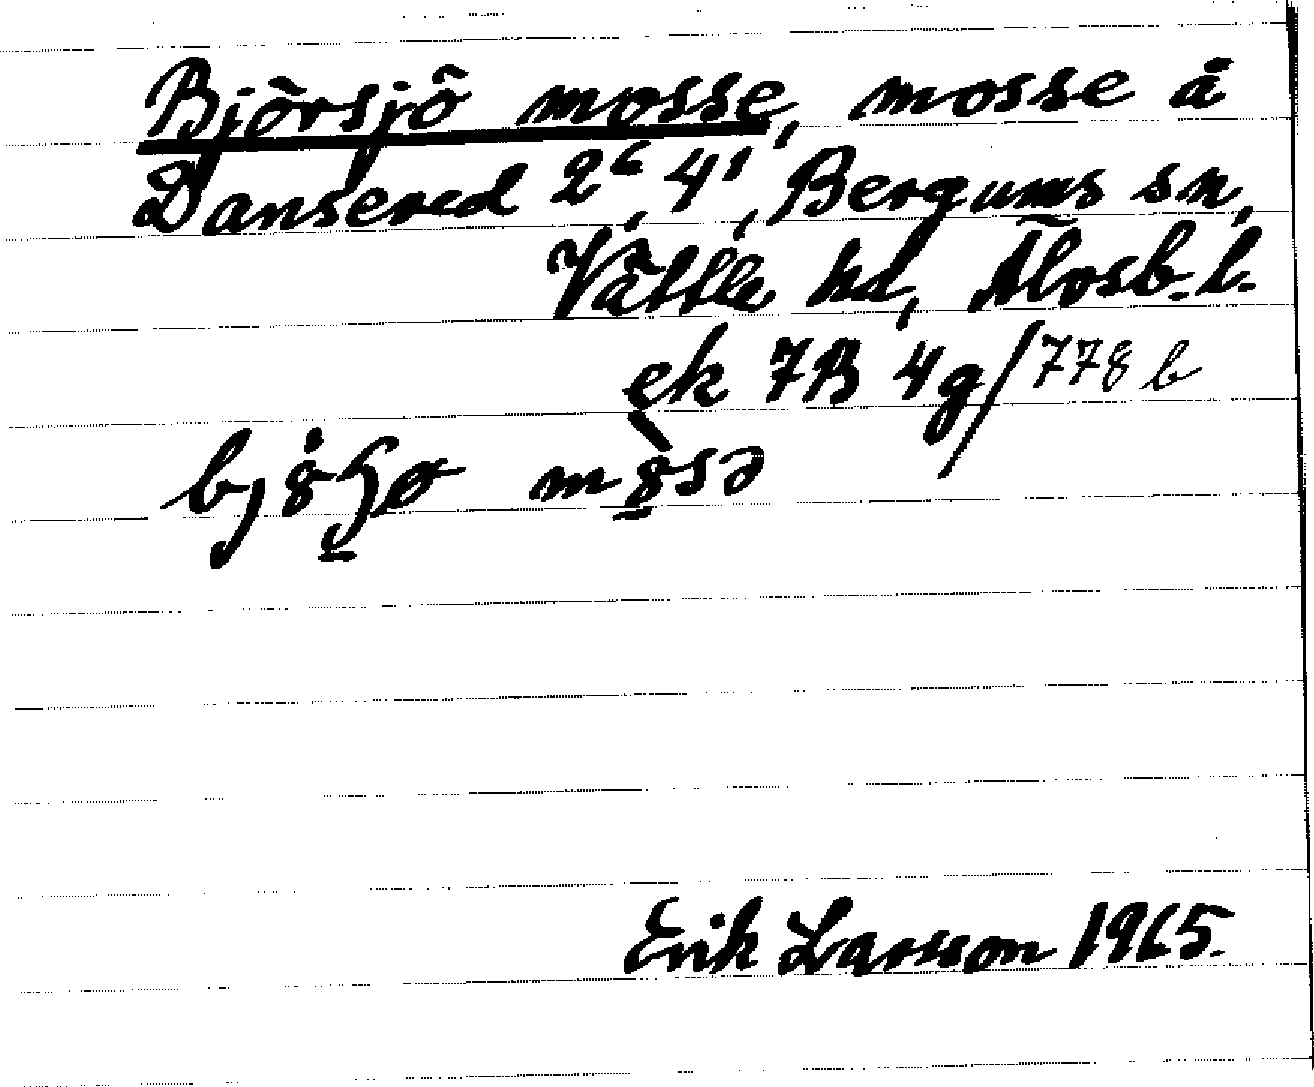 Björsjö mosse, mosse å
Dansered 2⁶, 4¹, Bergums sn,
Vättle hd, Älvsb. l.
ek 7B 4g/778 b
Erik Larsson 1965.